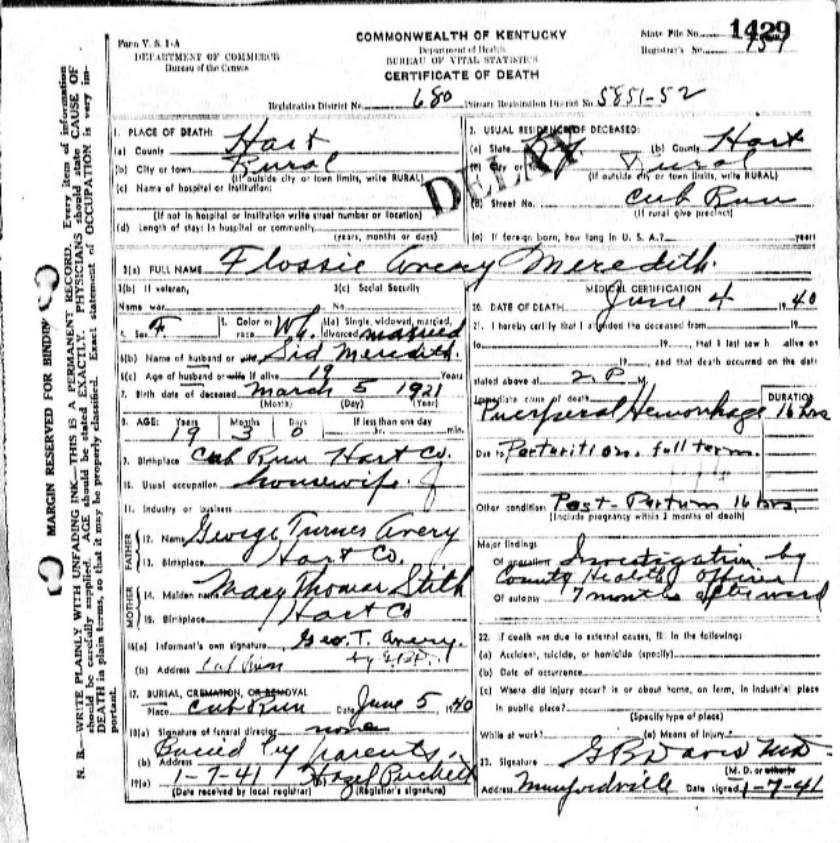 1429
COMMONWEALTH OF KENTUCKY
State File No.
Form V. S. 1-A
DEPARTMENT OF COMMERCE
Bureau of the Census
Department of Health
BUREAU OF VITAL STATISTICS
CERTIFICATE OF DEATH
Registrar's No.
Registration District No. 680 Primary Registration District No. 5851-52
DELAY
MARGIN RESERVED FOR BINDING
N. B.—WRITE PLAINLY WITH UNFADING INK—THIS IS A PERMANENT RECORD. Every item of information
should be carefully supplied. AGE should be stated EXACTLY. PHYSICIANS should state CAUSE OF
DEATH in plain terms, so that it may be properly classified. Exact statement of OCCUPATION is very im-
portant.
1. PLACE OF DEATH:
(a) County Hart
(b) City or town Rural
(If outside city or town limits, write RURAL)
(c) Name of hospital or institution:
(If not in hospital or institution write street number or location)
(d) Length of stay: In hospital or community
(years, months or days)
2. USUAL RESIDENCE OF DECEASED:
(a) State Ky. (b) County Hart
(c) City or Rural
(If outside city or town limits, write RURAL)
(d) Street No. Cub Run
(If rural give precinct)
(e) If foreign born, how long in U. S. A.? years
3(a) FULL NAME Flossie Avery Meredith.
3(b) If veteran, 3(c) Social Security
Name war No.
4. Sex F 5. Color or race Wh. 6(a) Single, widowed, married, divorced married
6(b) Name of husband or wife Sid Meredith.
6(c) Age of husband or wife if alive 19 Years
7. Birth date of deceased March 5 1921
(Month) (Day) (Year)
8. AGE: Years Months Days If less than one day
19 3 0 hr. min.
9. Birthplace Cub Run Hart Co.
10. Usual occupation housewife.
11. Industry or business
FATHER
12. Name George Turner Avery
13. Birthplace Hart Co.
MOTHER
14. Maiden name Mary Thomas Stith
15. Birthplace Hart Co
16(a) Informant's own signature Geo. T. Avery.
(b) Address Cub Run
17. BURIAL, CREMATION, OR REMOVAL
Place Cub Run Date June 5, 1940
18(a) Signature of funeral director none
Buried by parents.
(b) Address
19(a) 1-7-41 Hazel Puckett
(Date received by local registrar) (Registrar's signature)
MEDICAL CERTIFICATION
20. DATE OF DEATH June 4 1940
21. I hereby certify that I attended the deceased from 19
to 19, that I last saw h alive on
19, and that death occurred on the date
stated above at 2. P M.
Immediate cause of death DURATION
Puerperal Hemorrhage 16 hrs
Due to Parturition, full term.
Other condition Post-Partum 16 hrs.
(Include pregnancy within 3 months of death)
Major findings:
Of operation Investigation by
County Health Officer
Of autopsy 7 months afterward
22. If death was due to external causes, fill in the following:
(a) Accident, suicide, or homicide (specify)
(b) Date of occurrence
(c) Where did injury occur? in or about home, on farm, in industrial place
in public place?
(Specify type of place)
While at work? (e) Means of injury
23. Signature G B Davis MD
(M. D. or other)
Address Munfordville Date signed 1-7-41